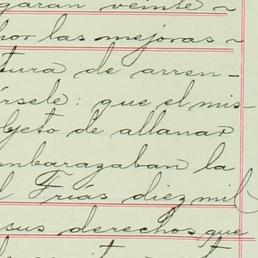 garan veinte ~
por las mejoras ~
tura de arren-
érsele: que el mis-
bjeto de allanar
mbarazaban la
l Frías diez mil
sus derechos que